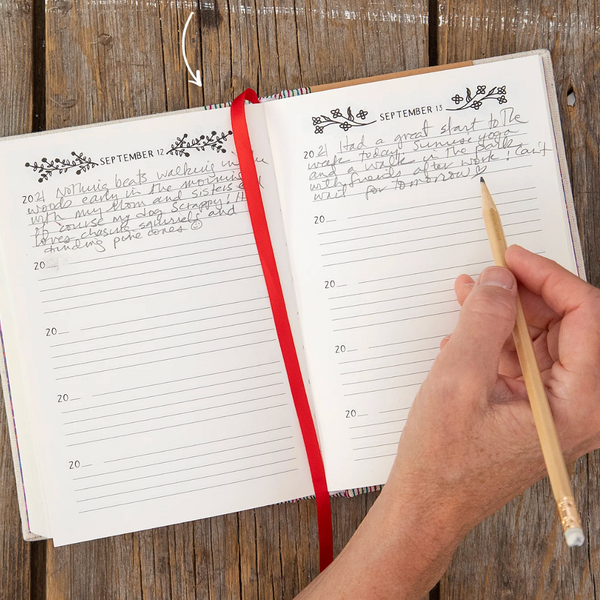 SEPTEMBER 12
2021 Nothing beats walking in
woods early in the morning
with my Mom and sisters and
of course my dog Scrappy! He
loves chasing squirrels and
finding pine cones ☺
20__
20__
20__
20__
SEPTEMBER 13
2021 Had a great start to the
week today. Sunrise yoga
and a walk in the park
w/ my friends after work! Can't
wait for tomorrow
20__
20__
20__
20__